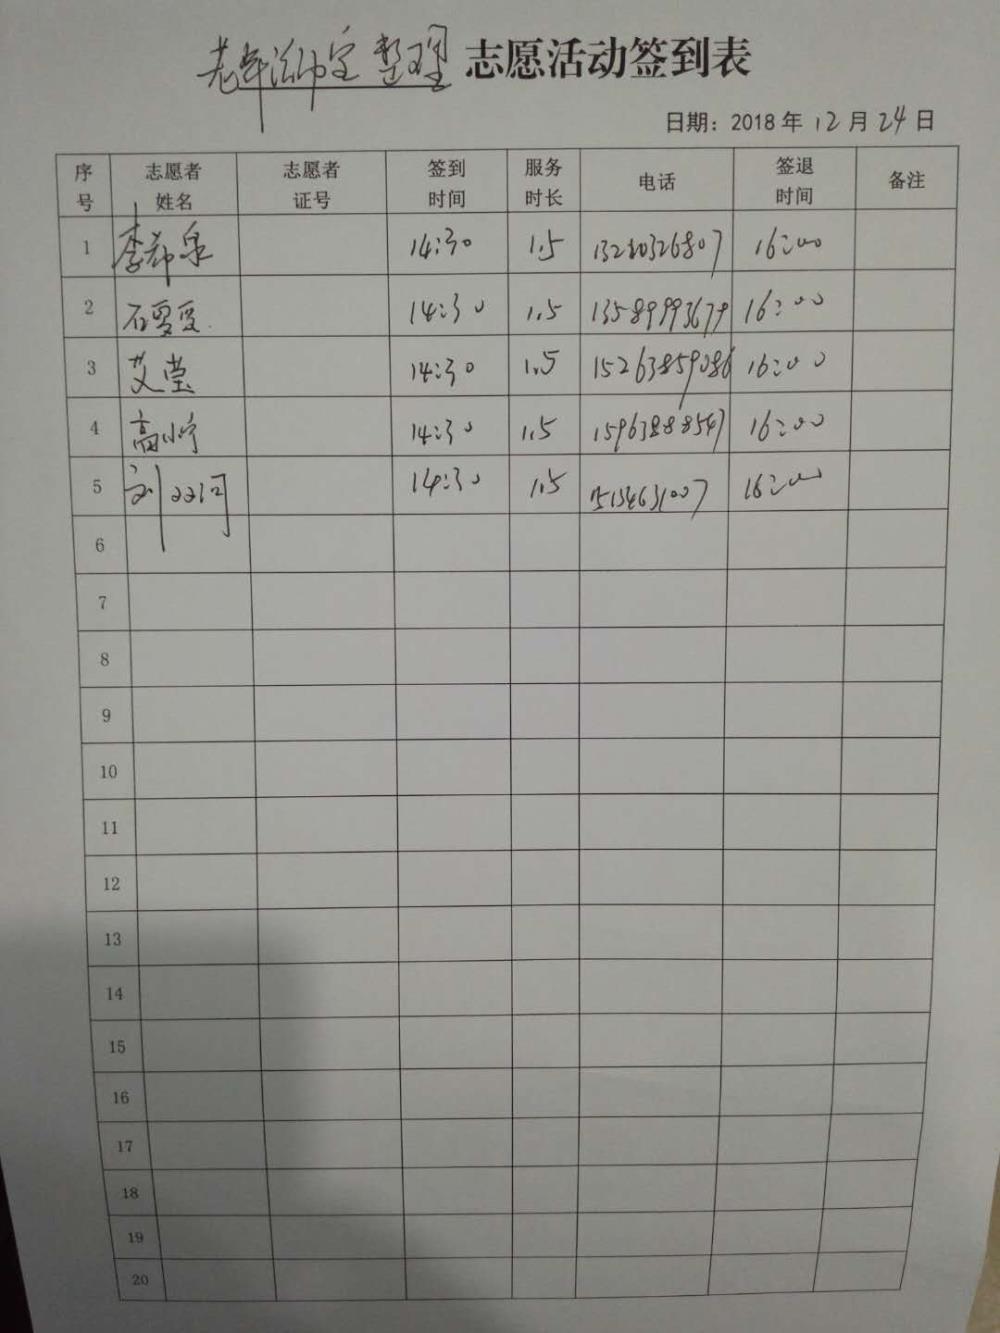 整理 志愿活动签到表
日期：2018年12月24日
序号 志愿者姓名 志愿者证号 签到时间 服务时长 电话 签退时间 备注
1 李希泉 14:30 1.5 16:00
2 14:30 1.5 13589993679 16:00
3 艾莹 14:30 1.5 15263859086 16:00
4 高小宁 14:30 1.5 15963888547 16:00
5 14:30 1.5 16:00
6
7
8
9
10
11
12
13
14
15
16
17
18
19
20